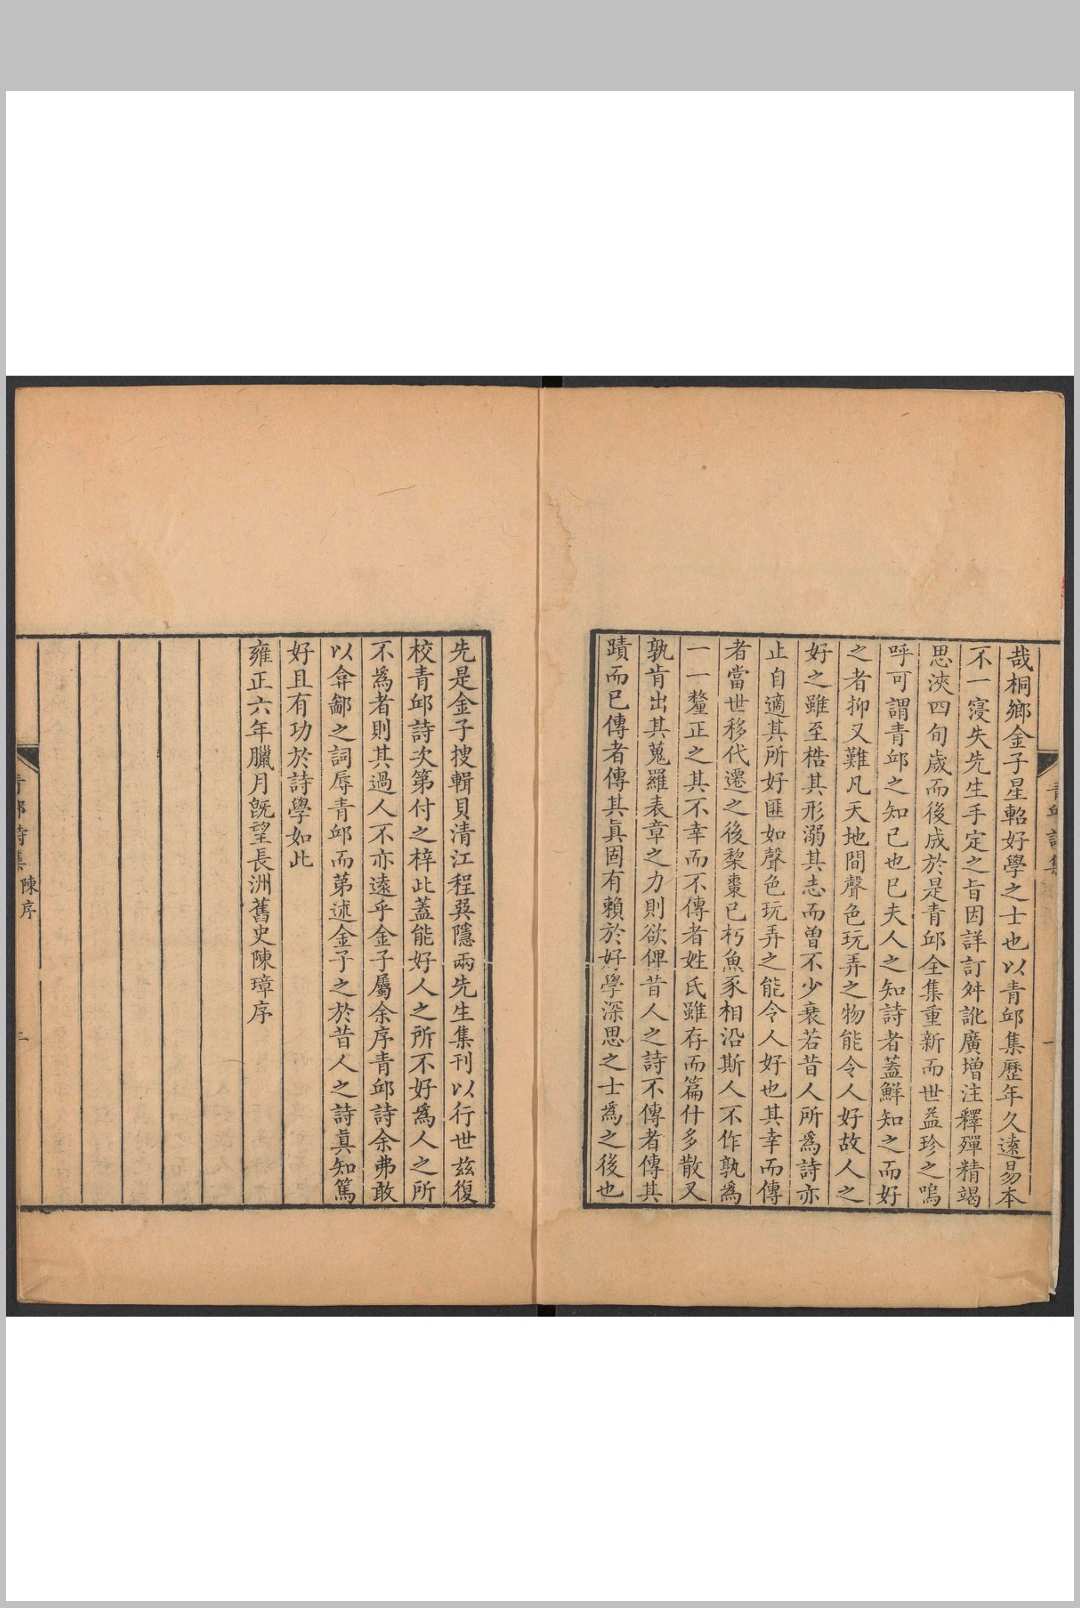 哉桐鄉金子星軺好學之士也以青邱集歷年久遠易本
不一寖失先生手定之旨因詳訂舛訛廣增注釋殫精竭
思浹四旬歲而後成於是青邱全集重新而世益珍之嗚
呼可謂青邱之知已也已夫人之知詩者蓋鮮知之而好
之者抑又難凡天地間聲色玩弄之物能令人好故人之
好之雖至梏其形溺其志而曾不少衰若昔人所爲詩亦
止自適其所好匪如聲色玩弄之能令人好也其幸而傳
者當世移代遷之後棃棗已朽魚豕相沿斯人不作孰爲
一一釐正之其不幸而不傳者姓氏雖存而篇什多散又
孰肯出其蒐羅表章之力則欲俾昔人之詩不傳者傳其
蹟而已傳者傳其眞固有賴於好學深思之士爲之後也
青邱詩集
一
先是金子搜輯貝清江程巽隱兩先生集刊以行世茲復
校青邱詩次第付之梓此蓋能好人之所不好爲人之所
不爲者則其過人不亦遠乎金子屬余序青邱詩余弗敢
以弇鄙之詞辱青邱而第述金子之於昔人之詩眞知篤
好且有功於詩學如此
雍正六年臘月旣望長洲舊史陳璋序
青邱詩集
陳序